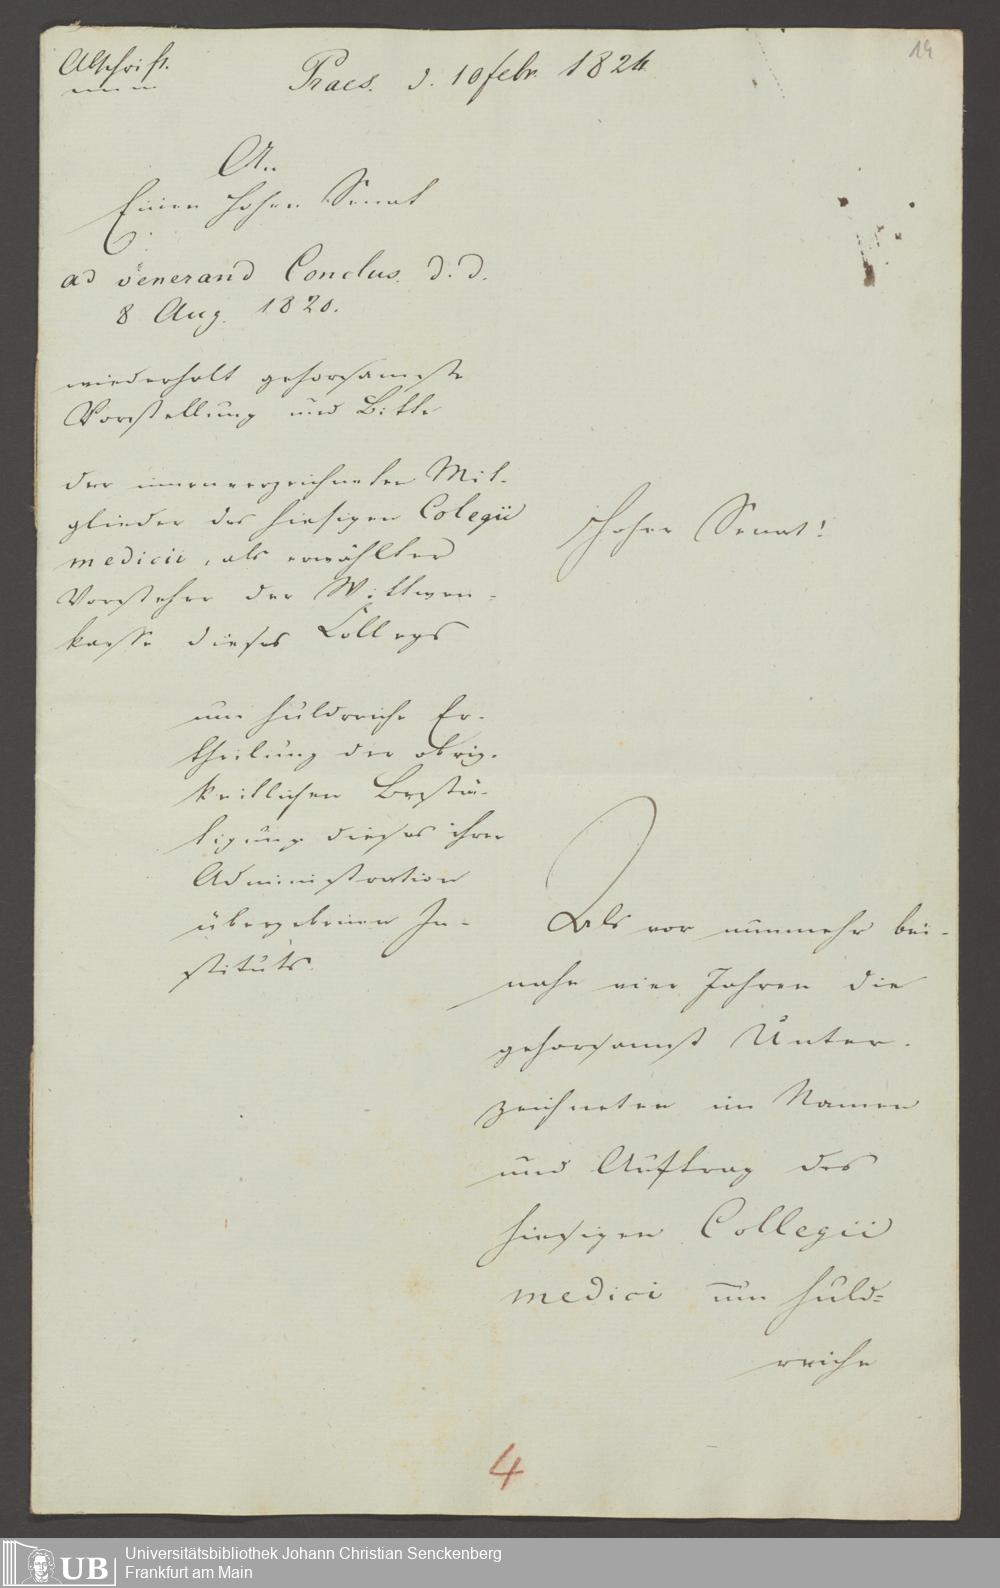 Abschrift.
19
Praes. d. 10 febr. 1824
An
Einen hohen Senat
ad venerand Conclus. d. d.
8 Aug. 1820.
wiederholt gehorsamste
Vorstellung und Bitte
der innenverzeichneten Mit-
glieder des hiesigen Colegii
medicii, als erwählter
Vorsteher der Wittwen-
kasse dieses Collegs
um huldreiche Er-
theilung der obrig-
keitlichen Bestä-
tigung dieses ihrer
Administration
übergebenen In-
stituts.
Hoher Senat!
Als vor nunmehr bei-
nahe vier Jahren die
gehorsamst Unter-
zeichneten im Namen
und Auftrag des
hiesigen Collegii
medici um huld-
reiche
4
UB
Universitätsbibliothek Johann Christian Senckenberg
Frankfurt am Main